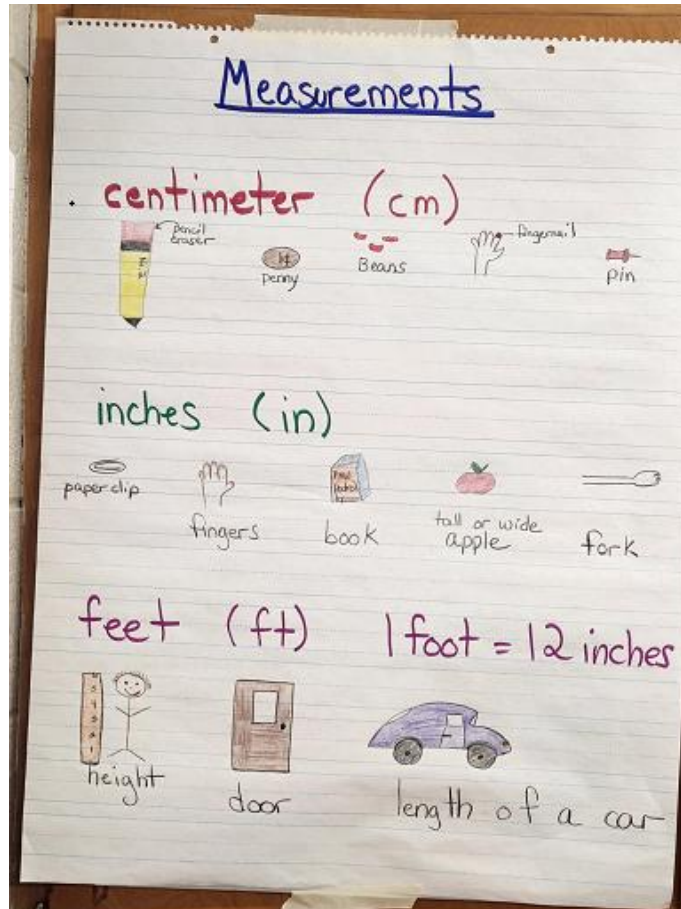 Measurements
centimeter (cm)
pencil
eraser
fingernail
penny
Beans
pin
inches (in)
paper clip
fingers
book
tall or wide
apple
fork
feet (ft) 1 foot = 12 inches
height
door
length of a car